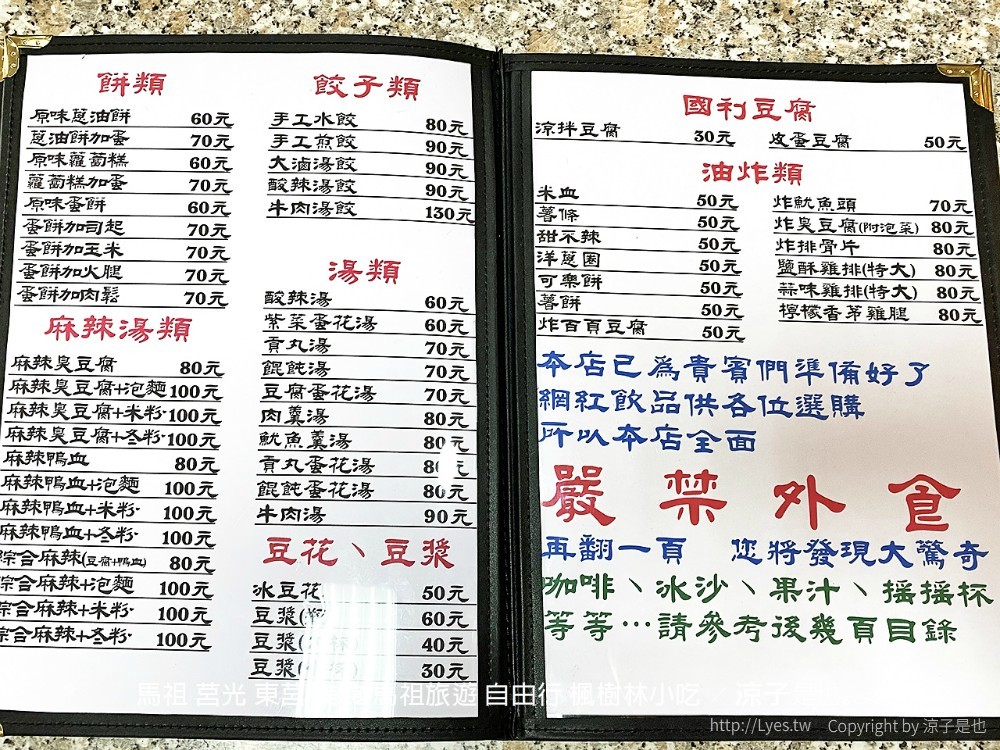 餅類
原味蔥油餅 60元
蔥油餅加蛋 70元
原味蘿蔔糕 60元
蘿蔔糕加蛋 70元
原味蛋餅 60元
蛋餅加司起 70元
蛋餅加玉米 70元
蛋餅加火腿 70元
蛋餅加肉鬆 70元
麻辣湯類
麻辣臭豆腐 80元
麻辣臭豆腐+泡麵 100元
麻辣臭豆腐+米粉 100元
麻辣臭豆腐+冬粉 100元
麻辣鴨血 80元
麻辣鴨血+泡麵 100元
麻辣鴨血+米粉 100元
麻辣鴨血+冬粉 100元
綜合麻辣(豆腐+鴨血) 80元
綜合麻辣+泡麵 100元
綜合麻辣+米粉 100元
綜合麻辣+冬粉 100元
餃子類
手工水餃 80元
手工煎餃 90元
大滷湯餃 90元
酸辣湯餃 90元
牛肉湯餃 130元
湯類
酸辣湯 60元
紫菜蛋花湯 60元
貢丸湯 70元
餛飩湯 70元
豆腐蛋花湯 70元
肉羹湯 80元
魷魚羹湯 80元
貢丸蛋花湯 80元
餛飩蛋花湯 80元
牛肉湯 90元
豆花、豆漿
冰豆花 50元
豆漿 60元
豆漿 40元
豆漿 30元
國利豆腐
涼拌豆腐 30元 皮蛋豆腐 50元
油炸類
米血 50元
薯條 50元
甜不辣 50元
洋蔥圈 50元
可樂餅 50元
薯餅 50元
炸百頁豆腐 50元
炸魷魚頭 70元
炸臭豆腐(附泡菜) 80元
炸排骨片 80元
鹽酥雞排(特大) 80元
蒜味雞排(特大) 80元
檸檬香茅雞腿 80元
本店已為貴賓們準備好了
網紅飲品供各位選購
所以本店全面
嚴禁外食
再翻一頁 您將發現大驚奇
咖啡、冰沙、果汁、搖搖杯
等等…請參考後幾頁目錄
馬祖 莒光 東莒 馬祖旅遊 自由行 楓樹林小吃 涼子是也
http://Lyes.tw Copyright by 涼子是也